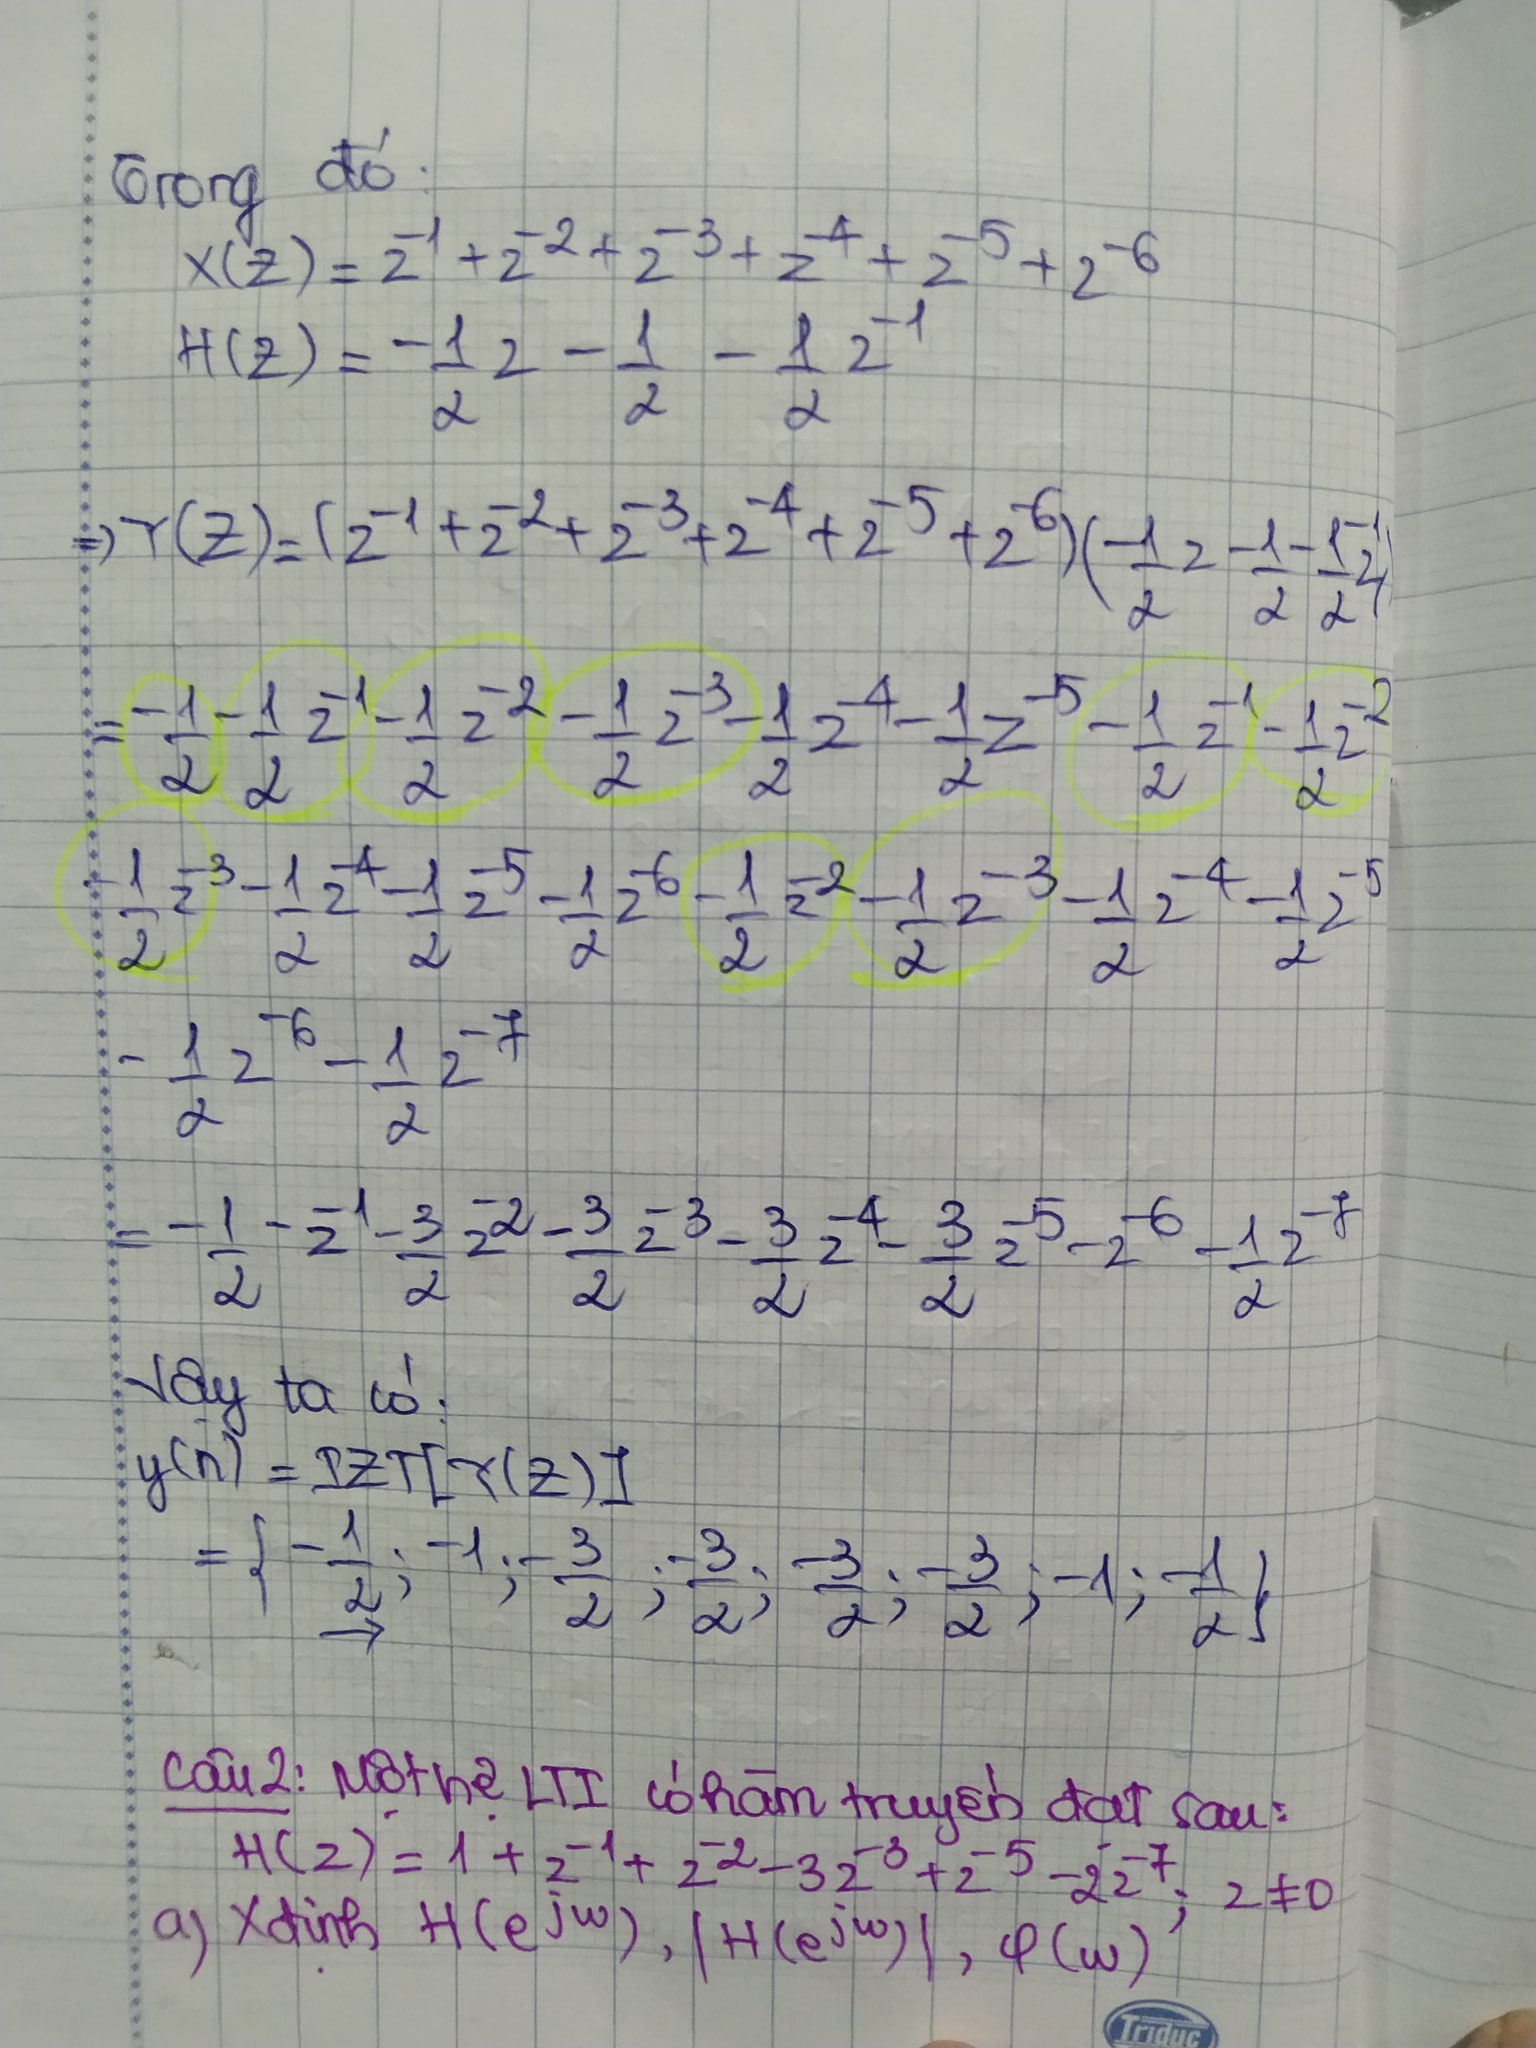 Trong đó:
X(Z) = z⁻¹ + z⁻² + z⁻³ + z⁻⁴ + z⁻⁵ + z⁻⁶
H(Z) = -1/2 z - 1/2 - 1/2 z⁻¹
⇒ Y(Z) = (z⁻¹ + z⁻² + z⁻³ + z⁻⁴ + z⁻⁵ + z⁻⁶)(-1/2 z - 1/2 - 1/2 z⁻¹)
= -1/2 - 1/2 z⁻¹ - 1/2 z⁻² - 1/2 z⁻³ - 1/2 z⁻⁴ - 1/2 z⁻⁵ - 1/2 z⁻¹ - 1/2 z⁻²
-1/2 z⁻³ - 1/2 z⁻⁴ - 1/2 z⁻⁵ - 1/2 z⁻⁶ - 1/2 z⁻² - 1/2 z⁻³ - 1/2 z⁻⁴ - 1/2 z⁻⁵
- 1/2 z⁻⁶ - 1/2 z⁻⁷
= -1/2 - z⁻¹ - 3/2 z⁻² - 3/2 z⁻³ - 3/2 z⁻⁴ - 3/2 z⁻⁵ - z⁻⁶ - 1/2 z⁻⁷
Vậy ta có:
y(n) = IZT[Y(Z)]
= { -1/2; -1; -3/2; -3/2; -3/2; -3/2; -1; -1/2 }
→
Câu 2: Một hệ LTI có hàm truyền đạt sau:
H(z) = 1 + z⁻¹ + z⁻² - 3z⁻³ + z⁻⁵ - 2z⁻⁷; z ≠ 0
a) Xđịnh H(e^jω), |H(e^jω)|, φ(ω)
Triduc